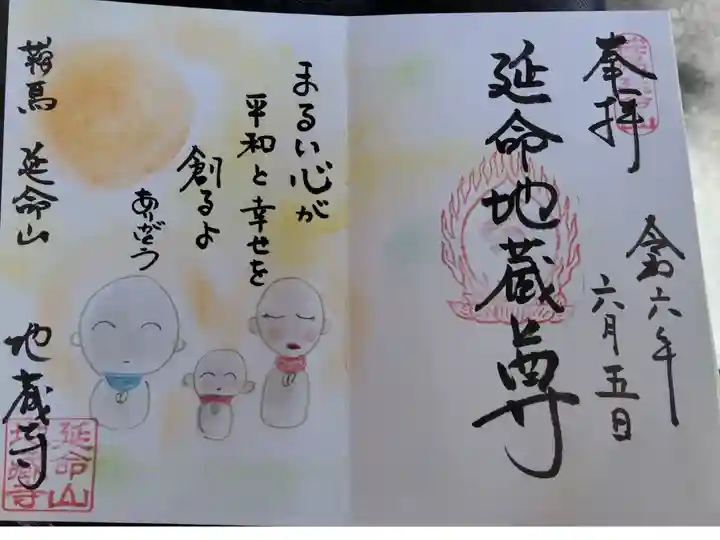 奉拝
延命地蔵尊
令和六年
六月五日
まるい心が
平和と幸せを
創るよ
ありがとう
鞍馬 延命山
地蔵寺
延命山
地蔵寺